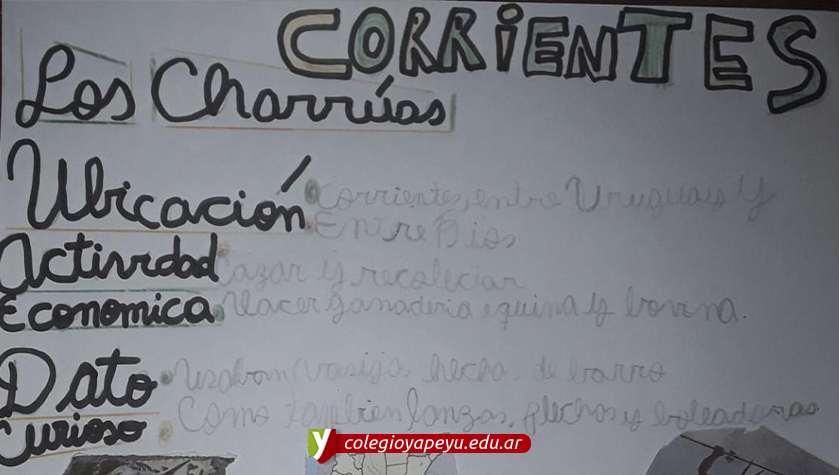 CORRIENTES
Los Charrúas
Ubicación
Corrientes, entre Uruguay y
Entre Rios
Actividad
Cazar y recolectar
Economica
Hacer ganaderia equina y bovina.
Dato
Usaban vasijas hechas de barro
Curioso
Como tambien lanzas, flechas y boleadoras
colegioyapeyu.edu.ar